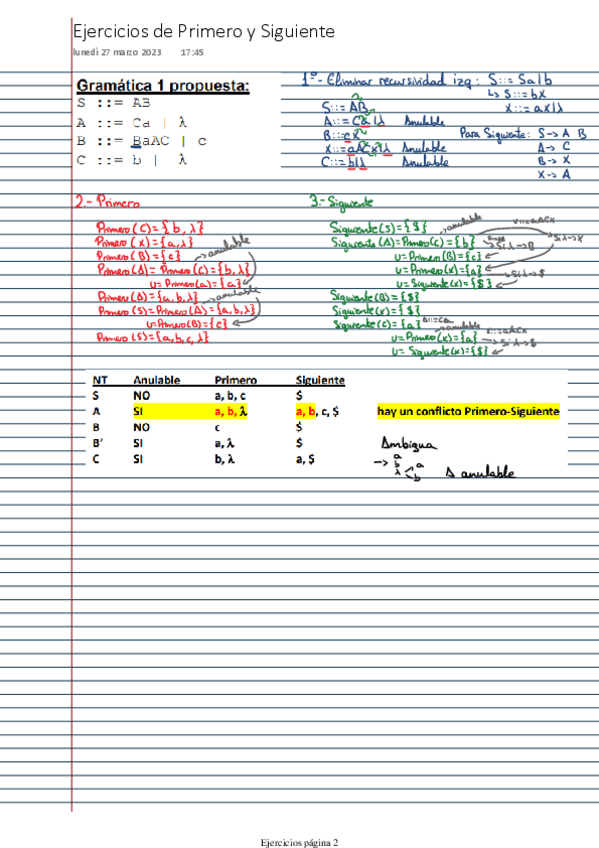 Ejercicios de Primero y Siguiente
lunedì 27 marzo 2023 17:45
Gramática 1 propuesta:
S ::= AB
A ::= Ca | λ
B ::= BaAC | c
C ::= b | λ
1º- Eliminar recursividad izq: S::= Sa|b
↳ S::= bX
X::= aX|λ
S::= AB
A::= Ca|λ Anulable
B::= cX
X::= aACX|λ Anulable
C::= b|λ Anulable
Para Siguiente: S-> A B
A-> C
B-> X
X-> A
2.- Primero
Primero(C)={b,λ}
Primero(X)={a,λ}
Primero(B)={c} ->anulable
Primero(A)= Primero(C)={b,λ}
U= Primero(a)={a}
Primero(A)={a,b,λ} ->anulable
Primero(S)=Primero(A)={a,b,λ}
U=Primero(B)={c}
Primero(S)={a,b,c,λ}
3.- Siguiente
Siguiente(S)={$}
Siguiente(A)=Primero(C)={b} ->anulable X::=aACX
U=Primero(B)={c}
U=Primero(X)={a}
U=Siguiente(X)={$}
Siguiente(B)={$}
Siguiente(X)={$}
Siguiente(C)={a} A::=Ca
U=Primero(X)={a} ->anulable X::=aACX
U= Siguiente(X)={$}
NT Anulable Primero Siguiente
S NO a, b, c $
A SI a, b, λ a, b, c, $ hay un conflicto Primero-Siguiente
B NO c $
B' SI a, λ $ Ambigua
C SI b, λ a, $
-> a b λ < a b A anulable
Ejercicios página 2